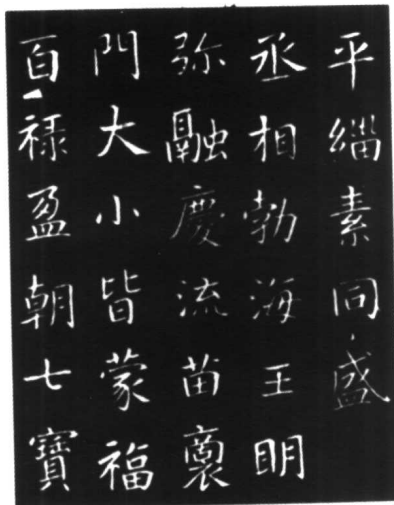 平緇素同盛
丞相勃海王明
弥融慶流苗裔
門大小皆蒙福
百祿盈朝七寶